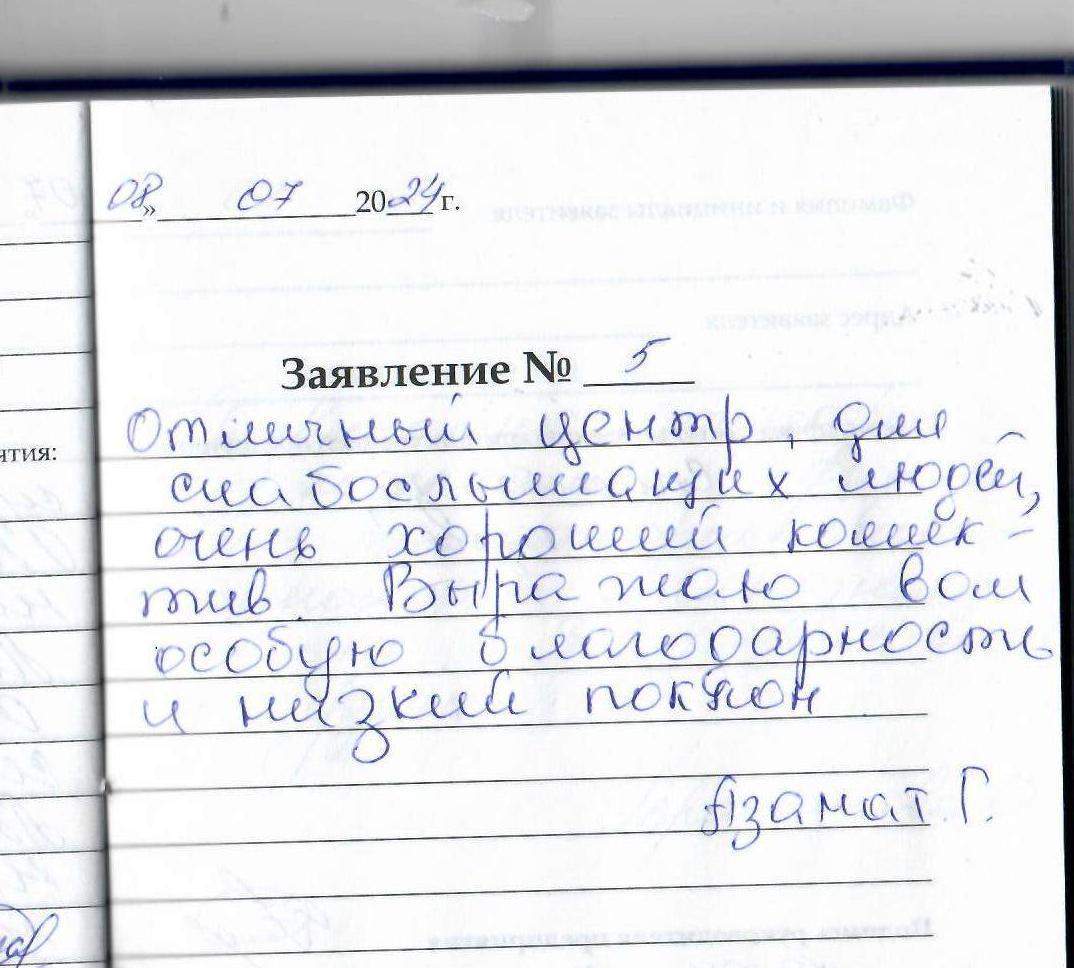 08» 07 2024 г.
Заявление № 5
ятия:
Отличный центр, для
слабослышащих людей,
очень хороший коллек-
тив. Выражаю вам
особую благодарность
и низкий поклон
Азамат. Г.